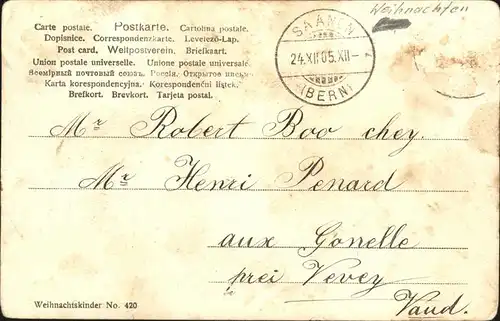 Weihnachten
Carte postale. Postkarte. Cartolina postale.
Dopisnice. Correspondenzkarte. Levelező-Lap.
Post card. Weltpostverein. Briefkaart.
Union postale universelle. Unione postale universale.
Всемірный почтовый союзъ. Россія. Открытое письмо.
Karta korespondencyjna. Korespondenční lístek.
Brefkort. Brevkort. Tarjeta postal.
SAANEN
24.XII.05.XII-
(BERN)
Mr Robert Boo chey.
Mr Henri Penard
aux Gonelle
prei Vevey
Vaud.
Weihnachtskinder No. 420